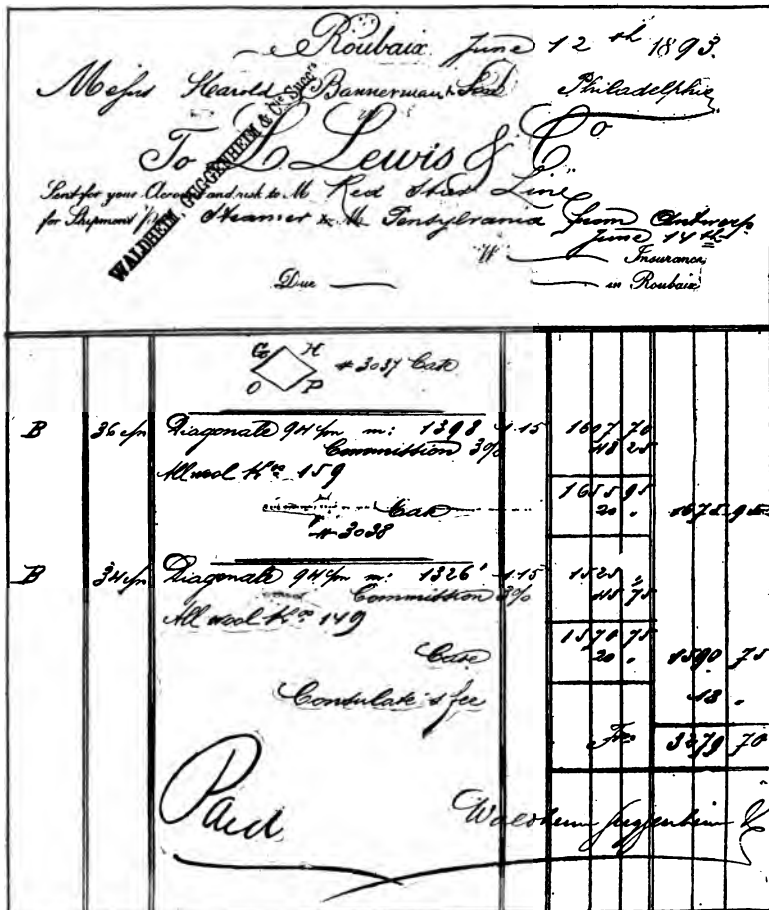 Roubaix June 12th 1893.
Messrs Harold Bannerman & Son Philadelphia
WALDHEIM, GUGGENHEIM & Co Succrs
To L. Lewis & Co
Sent for your Account and risk to M Red Star Line
for Shipment p. Steamer Pensylvania from Antwerp
June 14th
Insurance
Due in Roubaix
G H
# 3037 Case
O P
B 36 Diagonale 94 m: 1398 1.15 1607 70
Commission 3% 48 25
All wool Kos 159
1655 95
Case 20 " 1675 95
# 3038
B 34 Diagonale 94 m: 1326 1.15 1525 "
Commission 3% 45 75
All wool Kos 149
1570 75
Case 20 " 1590 75
Consulate's fee 13 "
Frs 3279 70
Paid
Waldheim Guggenheim &